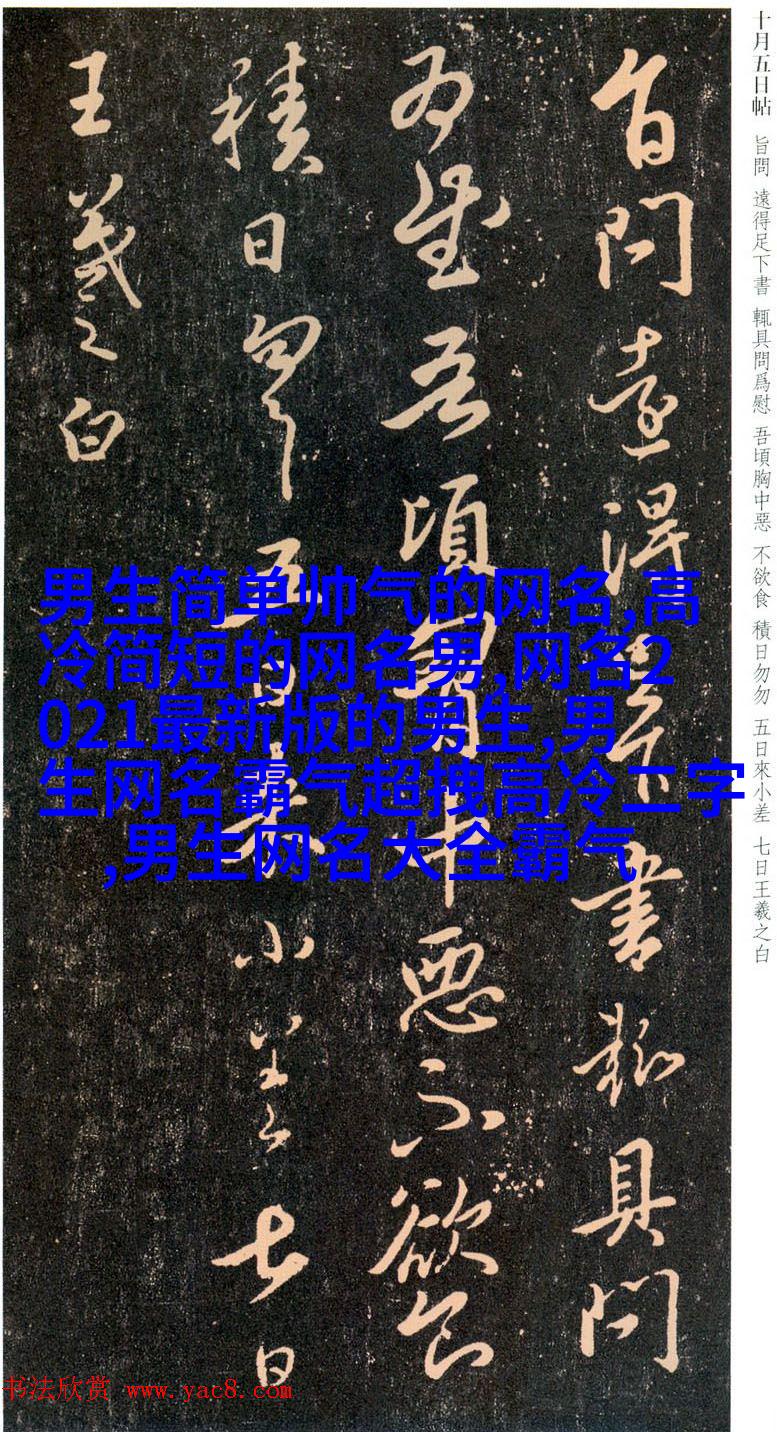 十月五日帖 旨問 遠得足下書 輒具問爲慰 吾頃胸中惡 不欲食 積日勿勿 五日來小差 七日王羲之白
旨問遠得足下書輒具問
爲慰吾頃胸中惡不欲食
積日勿勿五日來小差七日
王羲之白
男生简单帅气的网名,高
冷简短的网名男,网名2
021最新版的男生,男
生网名霸气超拽高冷二字
,男生网名大全霸气
书法欣赏 www.yac8.com